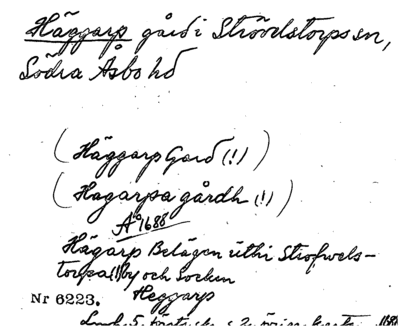 Häggarp gård i Strövelstorps sn,
Södra Åsbo hd
(Häggarp Gård (!))
(Hagarpa gårdh (!))
Aº 1688
Hägarp Belägen uthi Strofwels-
torpa (!) by och Sochen
Nr 6223. Heggarp